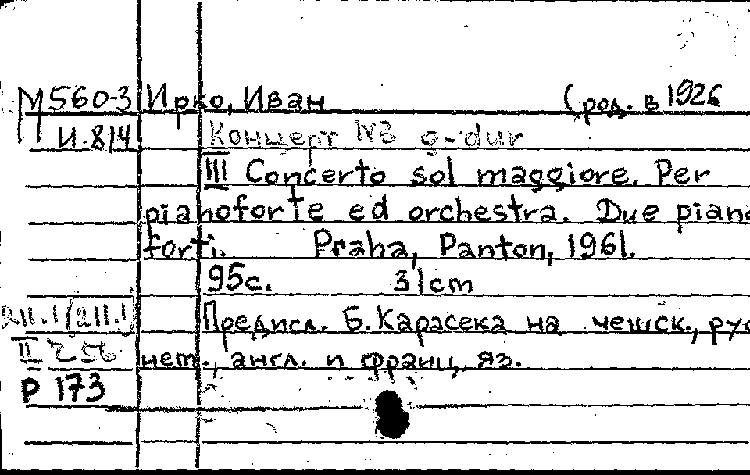 М560-3 Ирко, Иван (род. в 1926
И-814 Концерт №3 g-dur
III Concerto sol maggiore. Per
pianoforte ed orchestra. Due piano
forti. Praha, Panton, 1961.
95с. 31cm
Предисл. Б. Карасека на чешск., рус
II нет., англ. и франц. яз.
Р 173